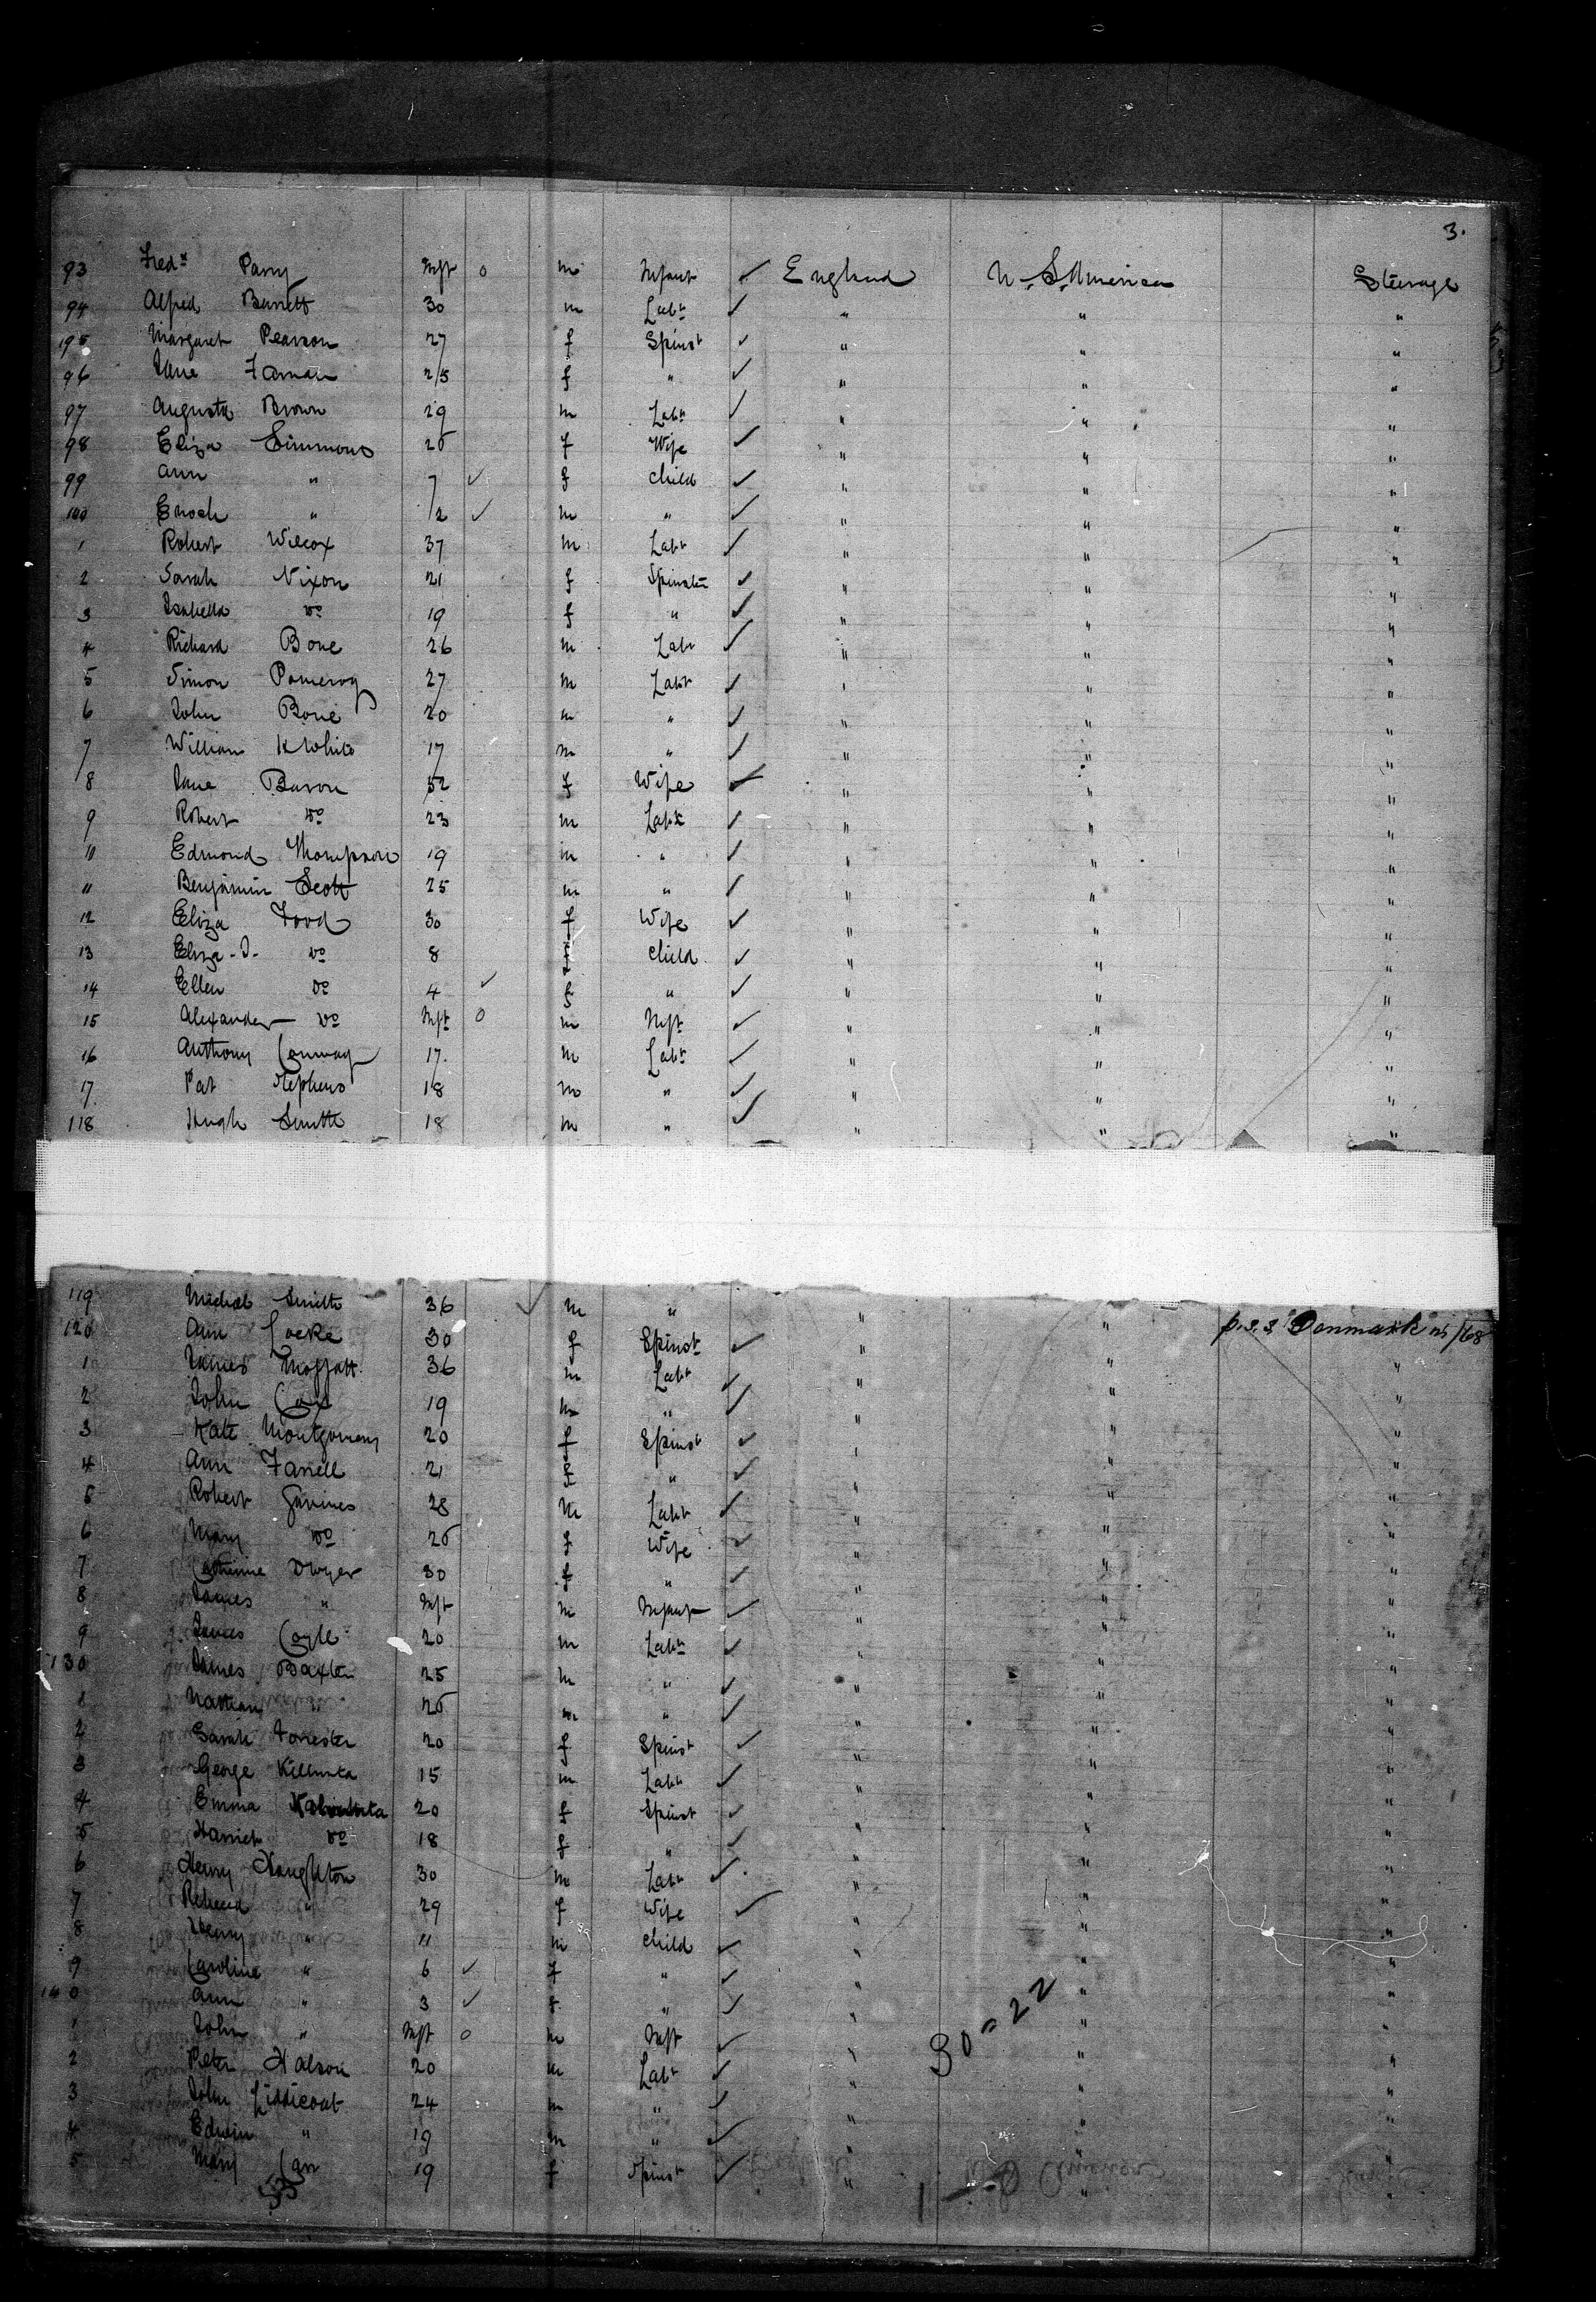 3.
93 Fredk Parry Inft o m Infant ✓ England U. S. America Steerage
94 Alfred Barrett 30 m Labr ✓ " " "
195 Margaret Pearson 27 f Spinst ✓ " " "
96 Jane 25 f " ✓ " " "
97 Augusta Brown 29 m Labr ✓ " " "
98 Eliza Simmons 26 f Wife ✓ " " "
99 Ann " 7 ✓ f Child ✓ " " "
100 Enoch " 1/2 ✓ m " ✓ " " "
1 Robert Wilcox 37 m Labr ✓ " " "
2 Sarah Nixon 21 f Spinster ✓ " " "
3 Isabella Do 19 f " ✓ " " "
4 Richard Bone 26 m Labr ✓ " " "
5 Simon Pomeroy 27 m Labr ✓ " " "
6 John Bone 20 m " ✓ " " "
7 William K White 17 m " ✓ " " "
8 Jane Baron 52 f Wife ✓ " " "
9 Robert Do 23 m Labr ✓ " " "
11 Edmond Thompson 19 m " ✓ " " "
11 Benjamin Scott 25 m " ✓ " " "
12 Eliza 30 f Wife ✓ " " "
13 Eliza - J - Do 8 f Child ✓ " " "
14 Ellen Do 4 ✓ f " ✓ " " "
15 Alexander Do Inft o m Inft ✓ " " "
16 Anthony Conway 17. m Labr ✓ " " "
17 Pat Stephens 18 m " ✓ " " "
118 Hugh Smith 18 m " ✓ " " "
119 Michal Smith 36 ✓ m " " "
120 Ann Locke 30 f Spinst ✓ " " p.s.s. Denmark /68
1 James Moffatt 36 m Labr ✓ " " "
2 John 19 m " ✓ " " "
3 Kate Montgomery 20 f Spinst ✓ " " "
4 Ann Farrell 21 f " ✓ " " "
5 Robert 28 m Labr ✓ " " "
6 Mary Do 26 f Wife ✓ " " "
7 Catherine Dwyer 30 f " ✓ " " "
8 James " Inft m Infant ✓ " " "
9 James Coyle 20 m Labr ✓ " " "
130 James Baxter 25 m " ✓ " " "
1 " 26 m " ✓ " " "
2 Sarah Forrester 20 f Spinst ✓ " " "
3 George 15 m Labr ✓ " " "
4 Emma 20 f Spinst ✓ " " "
5 Harriet Do 18 f " ✓ " " "
6 Henry Houghton 30 m Labr ✓ " " "
7 Rebecca " 29 f Wife ✓ " " "
8 Henry " 11 m Child ✓ " " "
9 Caroline " 6 ✓ f " ✓ " " "
140 Ann " 3 ✓ f " ✓ " " "
1 John " Inft o m Inft ✓ " " "
30 = 22
2 Peter 20 m Labr ✓ " " "
3 John Liddicoat 24 m " ✓ " " "
4 Edwin " 19 m " ✓ " " "
5 Mary Carr 19 f Spinst ✓ " " "
53